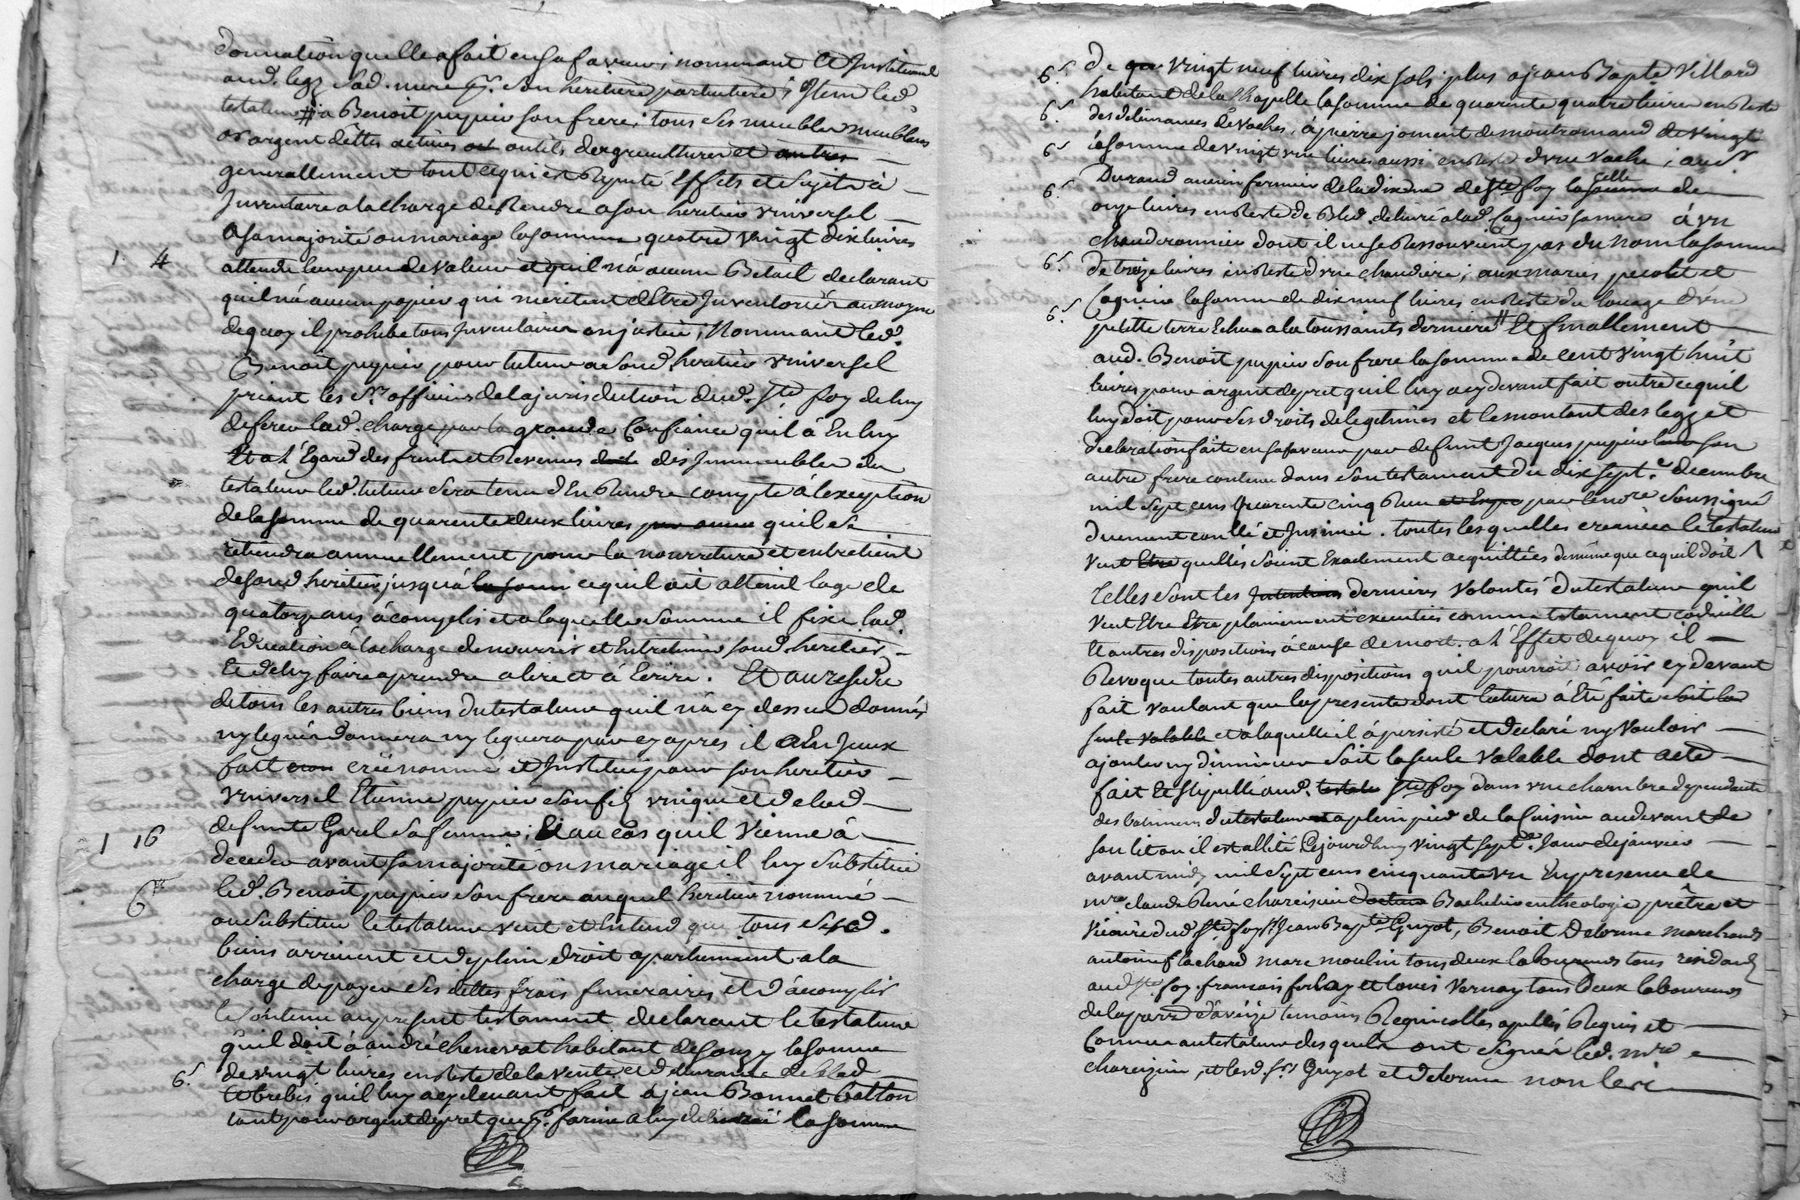 donnation quelle a fait en sa faveur ; nommant et Instituant
aud. legz lad. mere pr. son heritiere particuliere ; Item led.
testateur # a Benoit pupier son frere ; tous ses meubles meublans
or argent dettes actives outils dagriculture et autres
generallement tout ce qui est Reputé Effets et Sujets à
Inventaire a la charge de Rendre a son heritier vniversel
a sa majorité ou mariage la somme quatre vingt dix livres
1 4
attendu leur peu de valeur et quil nà aucun Betail declarant
quil nà aucun papier qui meritent dêtre Inventoriés au moyen
de quoy il prohibe tous Inventaires en justice ; Nommant led.
Benoit pupier pour tuteur a sond. heritier vniversel
priant les Srs officiers de la jurisdiction dud. Ste foy de luy
deferer lad. charge par la grande Confiance quil à En luy
Et a l'Egard des fruits et Revenus des Immeubles du
testateur led. tuteur sera tenu d'En Rendre compte à lexception
de la somme de quarente deux livres quil se
retiendra annuellement pour la nourriture et entretient
de sond. heritier jusquà ce quil ait atteint lage de
quatorze ans acomplis et a laquelle somme il fixe lad.
Education à la charge de nourrir et Entretenir sond. heritier
Et de luy faire aprendre a lire et à Ecrire. Et au residu
de tous les autres biens du testateur quil nà cy dessus donnés
ny legués donnera ny leguera par cy apres il a En Iceux
fait créé nommé et Institué pour son heritier
vniversel Etienne pupier son fils vnique et de lad.
deffunte sa femme ; Et au cas quil vienne à
1 16
deceder avant sa majorité ou mariage il luy substitue
led. Benoit pupier son frere auquel heritier nommé
6
ou substitue le testateur veut et Entend que tous sesd.
biens arrivent et de plein droit apartiennent a la
charge de payer ses dettes frais funeraires et d'acomplir
le contenu au present testament. declarant le testateur
quil doit à andré chenevat habitant de souzy la somme
6s.
de vingt livres en Reste de la vente et de
et brebis quil luy a cy devant fait à jean Bonnet
tant pour argent de pret que pr. farine a luy la somme
de vingt neuf livres dix sols ; plus a jean Bapte Villard
6s.
habitant de la Chapelle la somme de quarente quatre livres en Reste
6s.
des delivrances de vaches, à pierre joment de montromand de vingt
6s
la somme de vingt vne livres aussi en Reste d'vne vache ; au Sr
Durand ancien fermier de la dixme de Ste foy celle de
6s
onze livres en Reste de Bled delivré a lad. Cagnieu sa mere à vn
chauderonnier dont il ne se Ressouvient pas du nom la somme
6s.
de treize livres en Reste d'vne chaudiere ; aux maries pecolet et
Cagnieu la somme de dix neuf livres en Reste du louage d'vne
6s.
petitte terre Echu a la toussaints derniere # Et finallement
aud. Benoit pupier son frere la somme de cent vingt huit
livres pour argent de pret quil luy a cy devant fait outre ce quil
luy doit pour ses droits de legitimes et le montant des legz et
declaration faite en sa faveur par deffunt Jacques pupier son
autre frere contenu dans son testament du dix sept.e decembre
mil sept cens quarente cinq Recu par le nore soussigné
duement conllé et Insinué. toutes lesquelles creances le testateur
veut quelles soient Exactement acquittées de même que ce quil doit
Telles sont les dernieres volontés du testateur quil
veut Etre plainement executées comme testament codicille
Et autres dispositions à cause de mort. a l'Effet de quoy il
Revoque toutes autres dispositions quil pourroit avoir cy devant
fait voulant que la presente dont lecture à Eté faite soit la
seule valable et a laquelle il à persisté et declaré ny vouloir
ajouter ny diminuer soit la seule valable dont acte
fait Et stipullé aud. Ste foy dans vne chambre dependante
des batimens du testateur a plein pied de la Cuisine au devant de
son lit ou il est allité Cejourd'huy vingt sept.e Jour de janvier
avant midy mil sept cens cinquante vn En presence de
mre claude René chareizieu Bachelier en theologie prêtre et
vicaire dud. Ste foy Sr Jean Bapte Guyot, Benoit Delorme marchands
antoine flachard marc moulin tous deux laboureurs tous residants
aud. Ste foy. francois forlay et louis Vernay tous deux laboureurs
de la parr. d'aveize temoins Regnicolles apellés Requis et
Connus au testateur desquels ont signés led. mre
chareizieu, et lesd. Srs Guyot et delorme non les